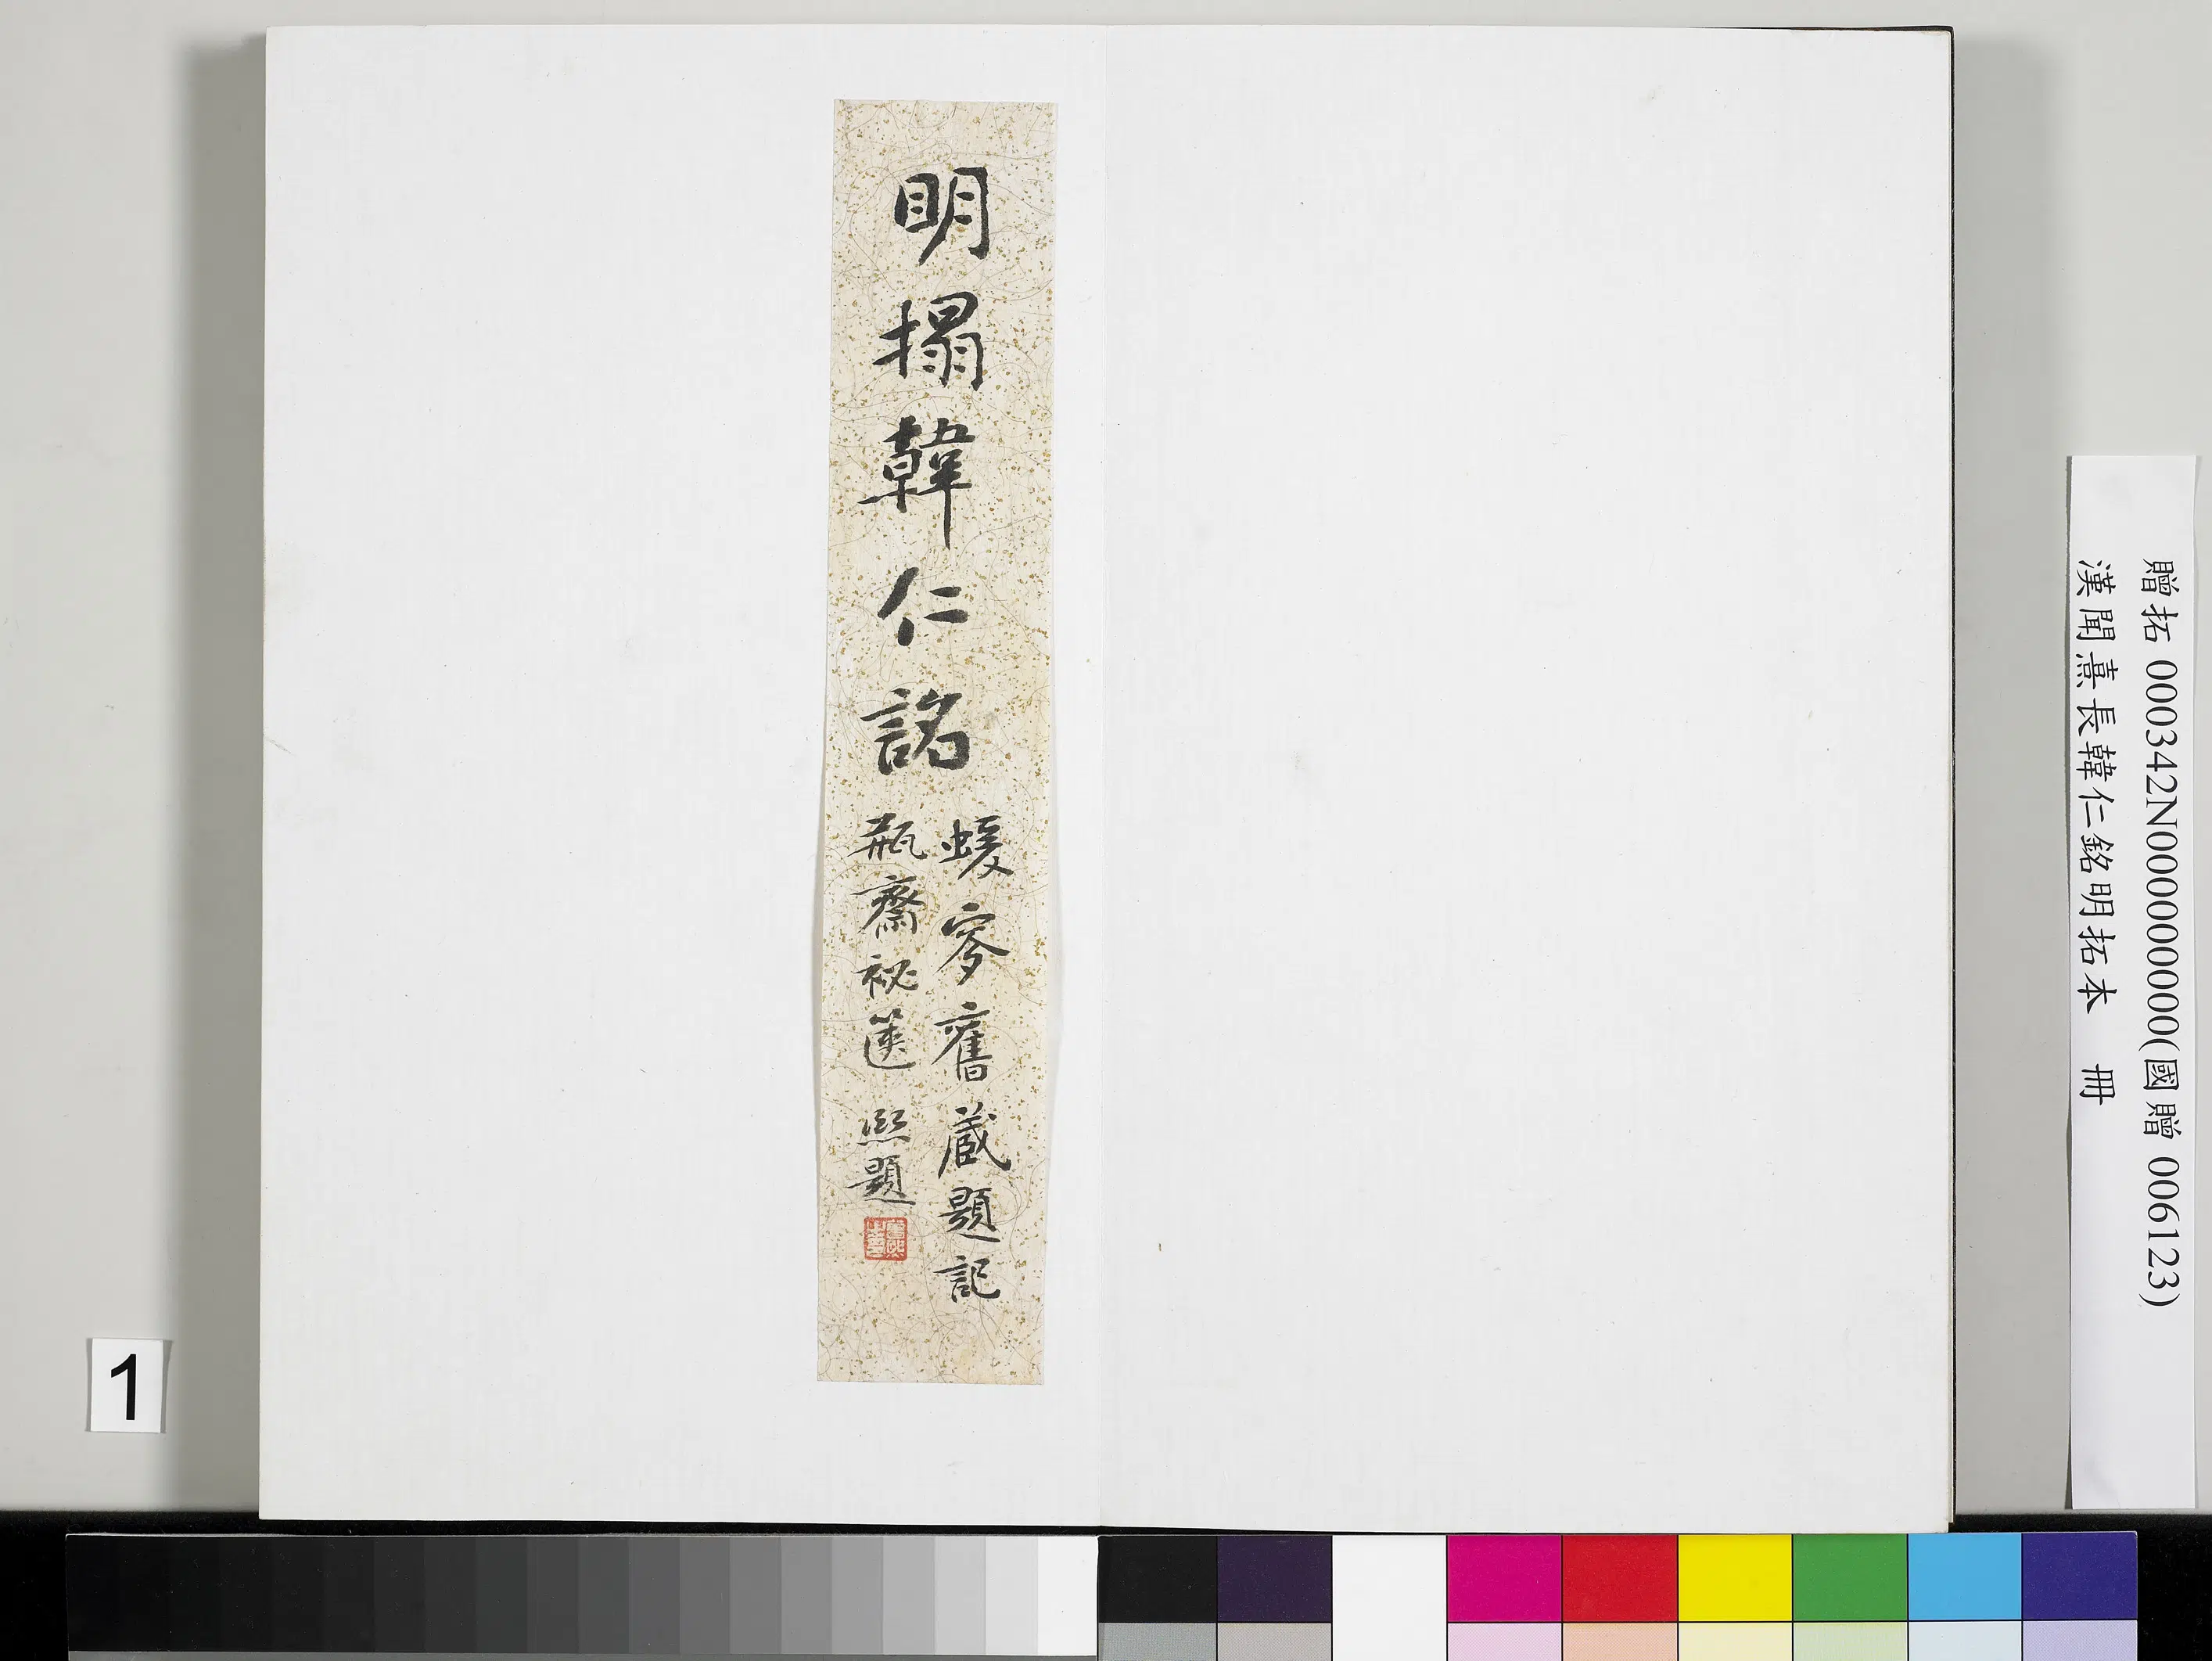 贈拓 000342N000000000(國贈 006123)
漢聞熹長韓仁銘明拓本 冊
明搨韓仁詺
蝯叜舊藏題記
瓶齋祕篋 熙題
1